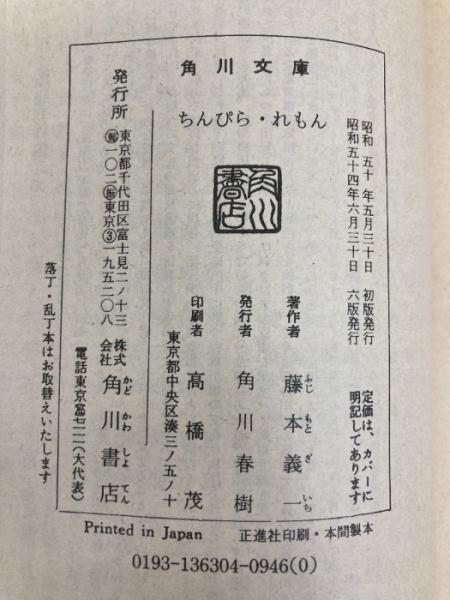 角川文庫
ちんぴら・れもん
角川書店
昭和五十年五月三十日 初版発行
昭和五十四年六月三十日 六版発行
定価は、カバーに
明記してあります
著作者 藤本義一
ふじもとぎいち
発行者 角川春樹
印刷者 高橋茂
東京都中央区湊三ノ五ノ十
発行所
東京都千代田区富士見二ノ十三
〒一〇二 振東京③一九五二〇八
株式会社 角川書店
かどかわしょてん
電話東京
(大代表)
落丁・乱丁本はお取替えいたします
Printed in Japan 正進社印刷・本間製本
0193-136304-0946(0)